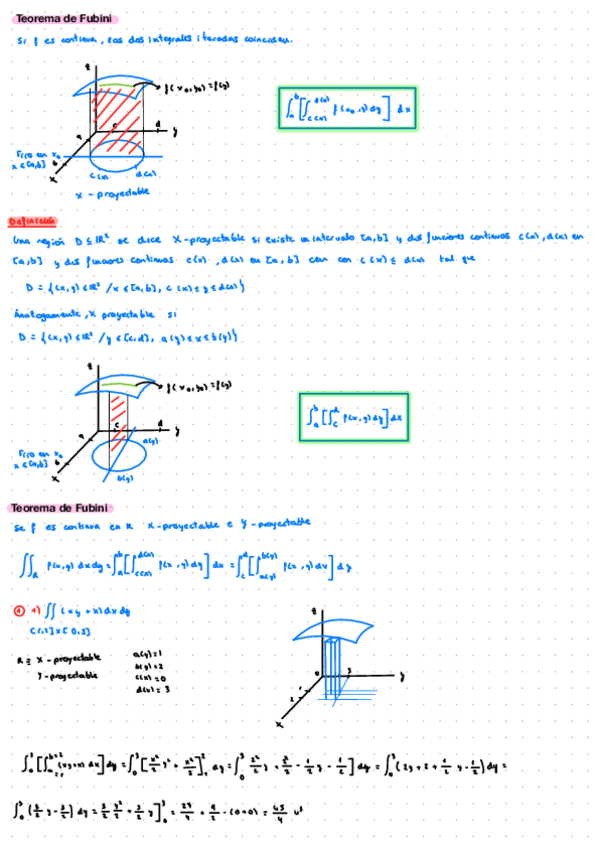 Teorema de Fubini
Si f es continua, las dos integrales iteradas coinciden.
z
f(x₀,y₀)=f(y)
∫ₐᵇ[∫_{c(x)}^{d(x)} f(x₀,y)dy] dx
a
c
d
y
Fijo en x₀
x∈[a,b]
b
x
c(x)
d(x)
x - proyectable
Definición
Una región D⊆ℝ² se dice X-proyectable si existe un intervalo [a,b] y dos funciones continuas c(x), d(x) en
[a,b] y dos funciones continuas c(x), d(x) en [a,b] con c(x)≤d(x) tal que
D = {(x,y)∈ℝ² / x∈[a,b], c(x)≤y≤d(x)}
Análogamente, x proyectable si
D = {(x,y)∈ℝ² / y∈[c,d], a(y)≤x≤b(y)}
z
f(x₀,y₀)=f(y)
∫ₐᵇ[∫_c^d f(x,y)dy]dx
a
c
d
y
a(y)
Fijo en x₀
x∈[a,b]
b
x
b(y)
Teorema de Fubini
Se f es continua en R X-proyectable e Y-proyectable
∬_R f(x,y)dxdy=∫ₐᵇ[∫_{c(x)}^{d(x)} f(x,y)dy]dx=∫_c^d[∫_{a(y)}^{b(y)} f(x,y)dx]dy
① a) ∬(xy+x)dxdy
[1,2]x[0,3]
R ≡ X-proyectable
Y-proyectable
a(y)=1
b(y)=2
c(x)=0
d(x)=3
z
0
3
y
1
2
x
∫₀³[∫_{a=1}^{b=2}(xy+x)dx]dy=∫₀³[x²/2 y+x²/2]₁² dy=∫₀³ 2²/2 y+2²/2-1/2 y-1/2]dy=∫₀³(2y+2+1/2 y-1/2)dy=
∫₀³(3/2 y-3/2)dy=3/2 y²/2+3/2 y]₀³=27/4+9/2-(0+0)=45/4 u³